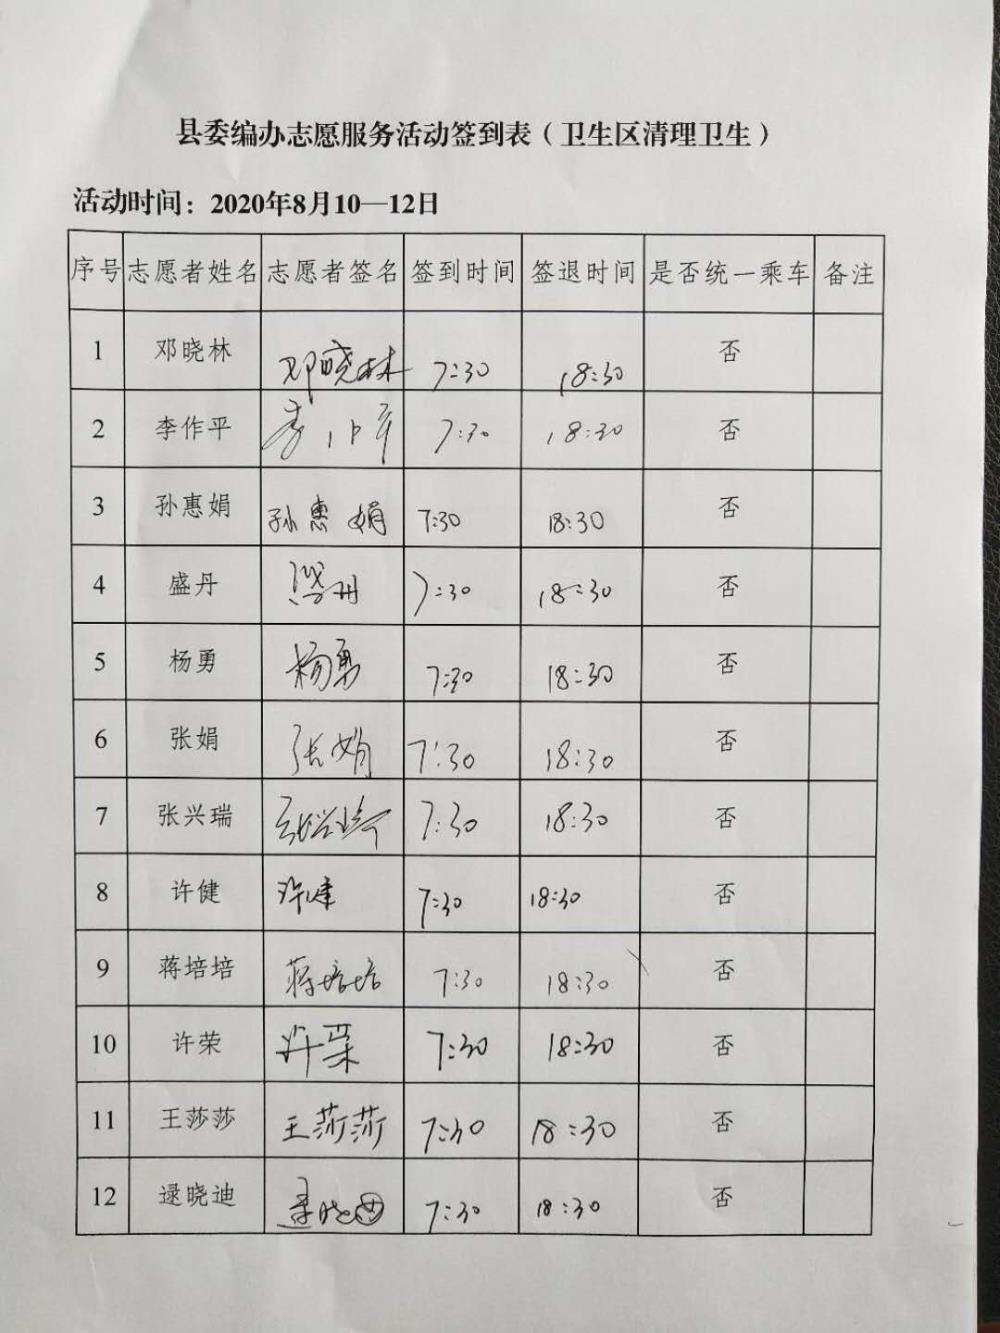 县委编办志愿服务活动签到表（卫生区清理卫生）
活动时间：2020年8月10—12日
序号 志愿者姓名 志愿者签名 签到时间 签退时间 是否统一乘车 备注
1 邓晓林 邓晓林 7:30 18:30 否
2 李作平 李作平 7:30 18:30 否
3 孙惠娟 孙惠娟 7:30 18:30 否
4 盛丹 盛丹 7:30 18:30 否
5 杨勇 杨勇 7:30 18:30 否
6 张娟 张娟 7:30 18:30 否
7 张兴瑞 张兴瑞 7:30 18:30 否
8 许健 许健 7:30 18:30 否
9 蒋培培 蒋培培 7:30 18:30 否
10 许荣 许荣 7:30 18:30 否
11 王莎莎 王莎莎 7:30 18:30 否
12 逯晓迪 逯晓迪 7:30 18:30 否